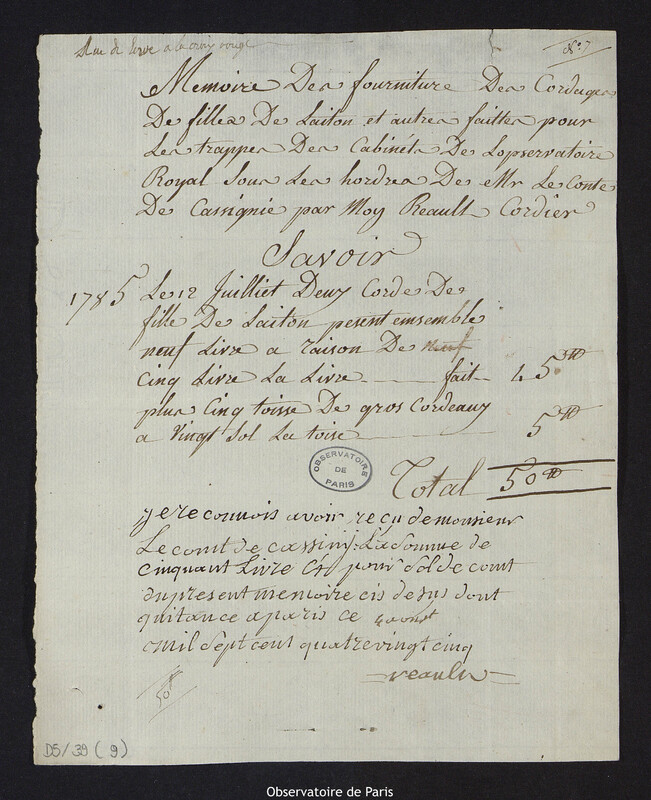 Rue de a la croix rouge
N° 7
Memoire Des fourniture Des Cordages
De filles De Laiton et autres faittes pour
Les trappes Des Cabinéts De Lopservatoire
Royal sous Les hordres De Mr Le Conte
De Cassignie par Moy Reault Cordier
Savoir
1785 Le 12 Juilliet Deux Corde De
fille De Laiton pesent ensemble
neuf Livre a raison De neuf
Cinq Livre La Livre fait 45tt
plus Cinq toisse De gros Cordeaux
a Vingt Sol La toise 5tt
OBSERVATOIRE DE PARIS
Total 50tt
je reconnois avoir reçu de monsieur
Le comt de cassini La somme de
cinquant Livre pour solde comt
du present memoire cis desus dont
quitance a paris ce aoust
mil sept cent quatrevingt cinq
reault
50tt
D5/39 (9)
Observatoire de Paris